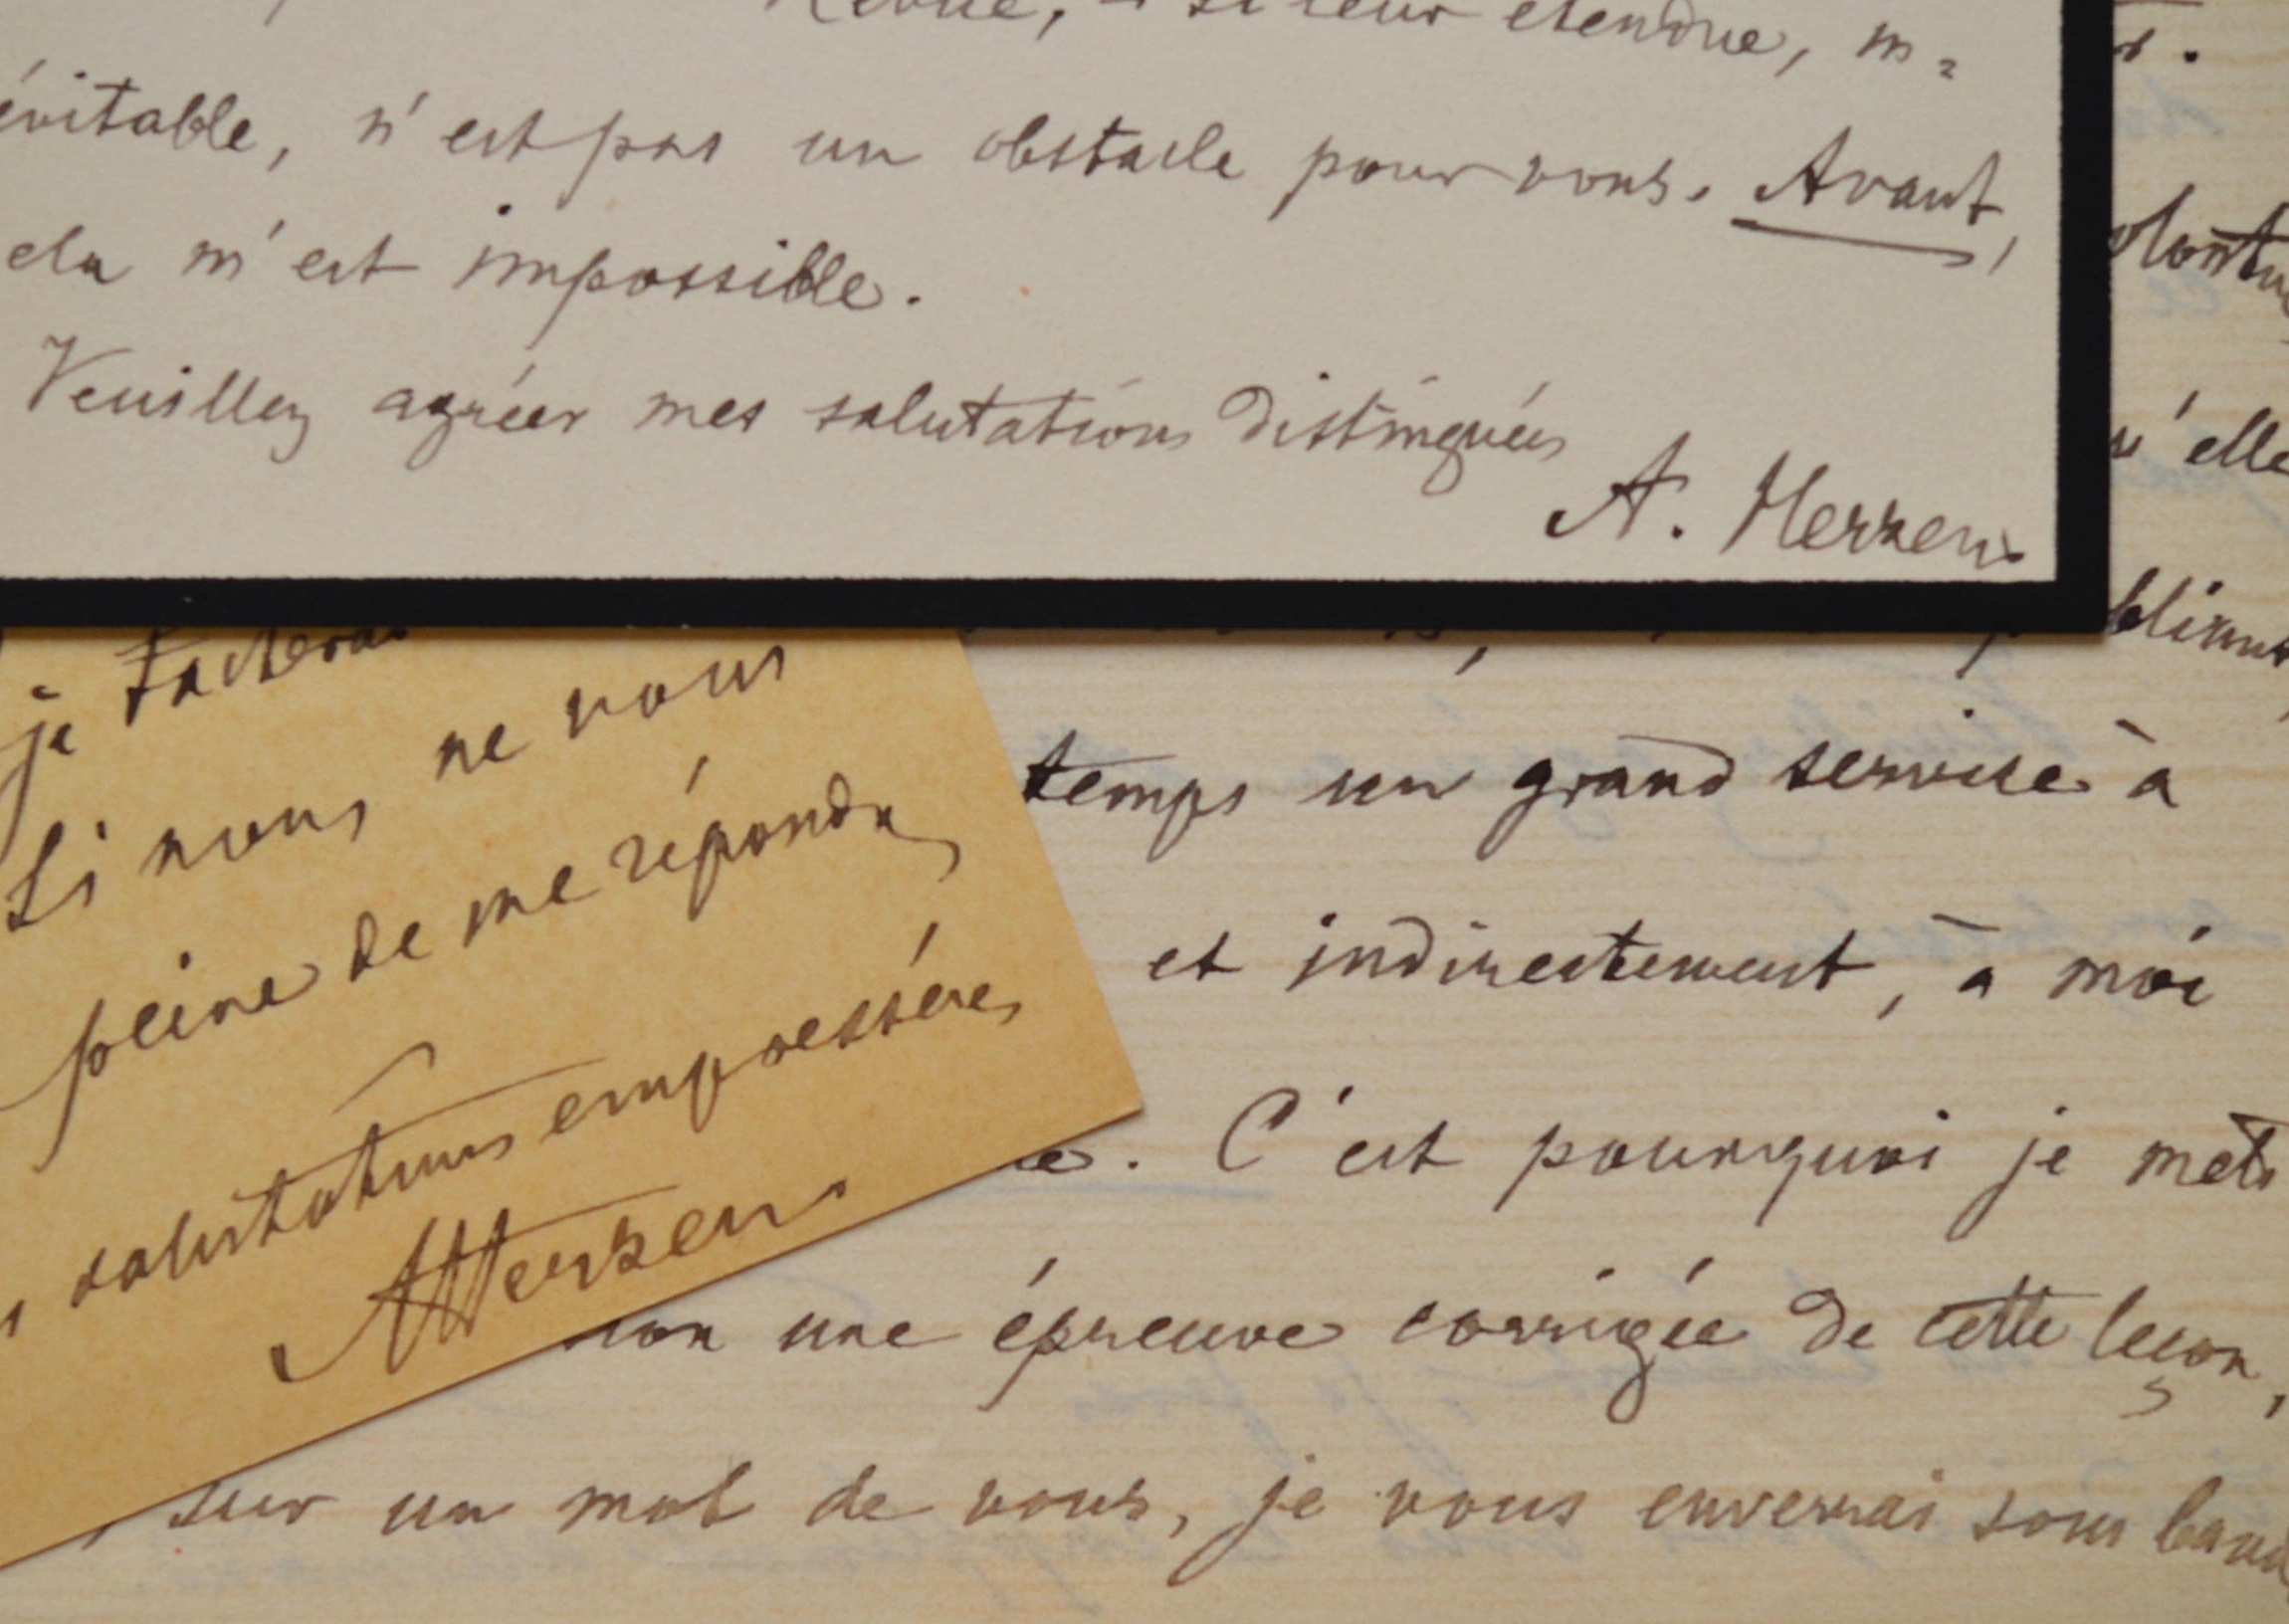 Revue, – si leur étendue, in=
évitable, n'est pas un obstacle pour vous. Avant,
ela m'est impossible.
Veuillez agréer mes salutations distinguées
A. Herzen
je tacherai
Si vous ne vous
peine de me répondre,
salutations empressées,
AHerzen
u'elle
bliant
temps un grand service à
et indirectement, à moi
e. C'est pourquoi je mets
une épreuve corrigée de cette leçon,
sur un mot de vous, je vous enverrai sous band